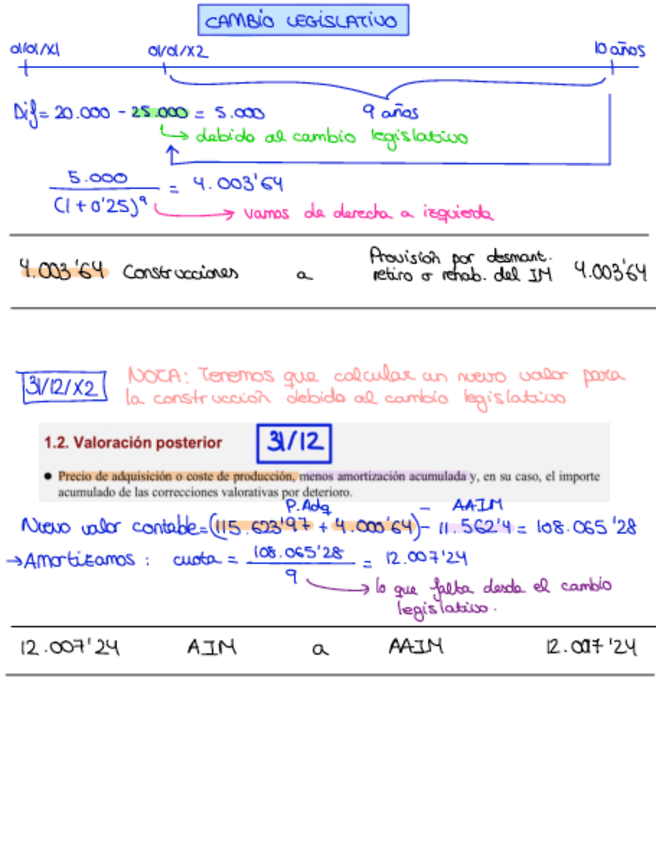 CAMBIO LEGISLATIVO
01/01/X1 01/01/X2 10 años
Dif = 20.000 - 25.000 = 5.000 9 años
↳ debido al cambio legislativo
5.000 / (1+0'25)⁹ = 4.003'64
→ vamos de derecha a izquierda
4.003'64 Construcciones a Provisión por desmant.
retiro o rehab. del IM 4.003'64
31/12/X2 NOTA: Tenemos que calcular un nuevo valor para
la construcción debido al cambio legislativo
1.2. Valoración posterior 31/12
● Precio de adquisición o coste de producción, menos amortización acumulada y, en su caso, el importe
acumulado de las correcciones valorativas por deterioro.
P.Adq - AAIM
Nuevo valor contable = (115.623'97 + 4.000'64) - 11.562'4 = 108.065'28
→ Amortizamos : cuota = 108.065'28 / 9 = 12.007'24
→ lo que falta desde el cambio
legislativo.
12.007'24 AIM a AAIM 12.007'24